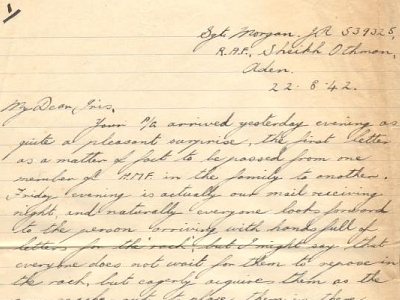 1
Sgt Morgan. J.R 539325,
R.A.F., Sheikh Othman,
Aden.
22-8-42.
My Dear Iris,
Your P/C arrived yesterday evening as
quite a pleasant surprise, the first letter
as a matter of fact to be passed from one
member of H.M.F. in the family to another.
Friday evening is actually our mail receiving
night, and naturally everyone looks forward
to the person arriving with hands full of
letters, for the "rack", but I might say that
everyone does not wait for them to repose in
the rack, but eagerly acquires them as the